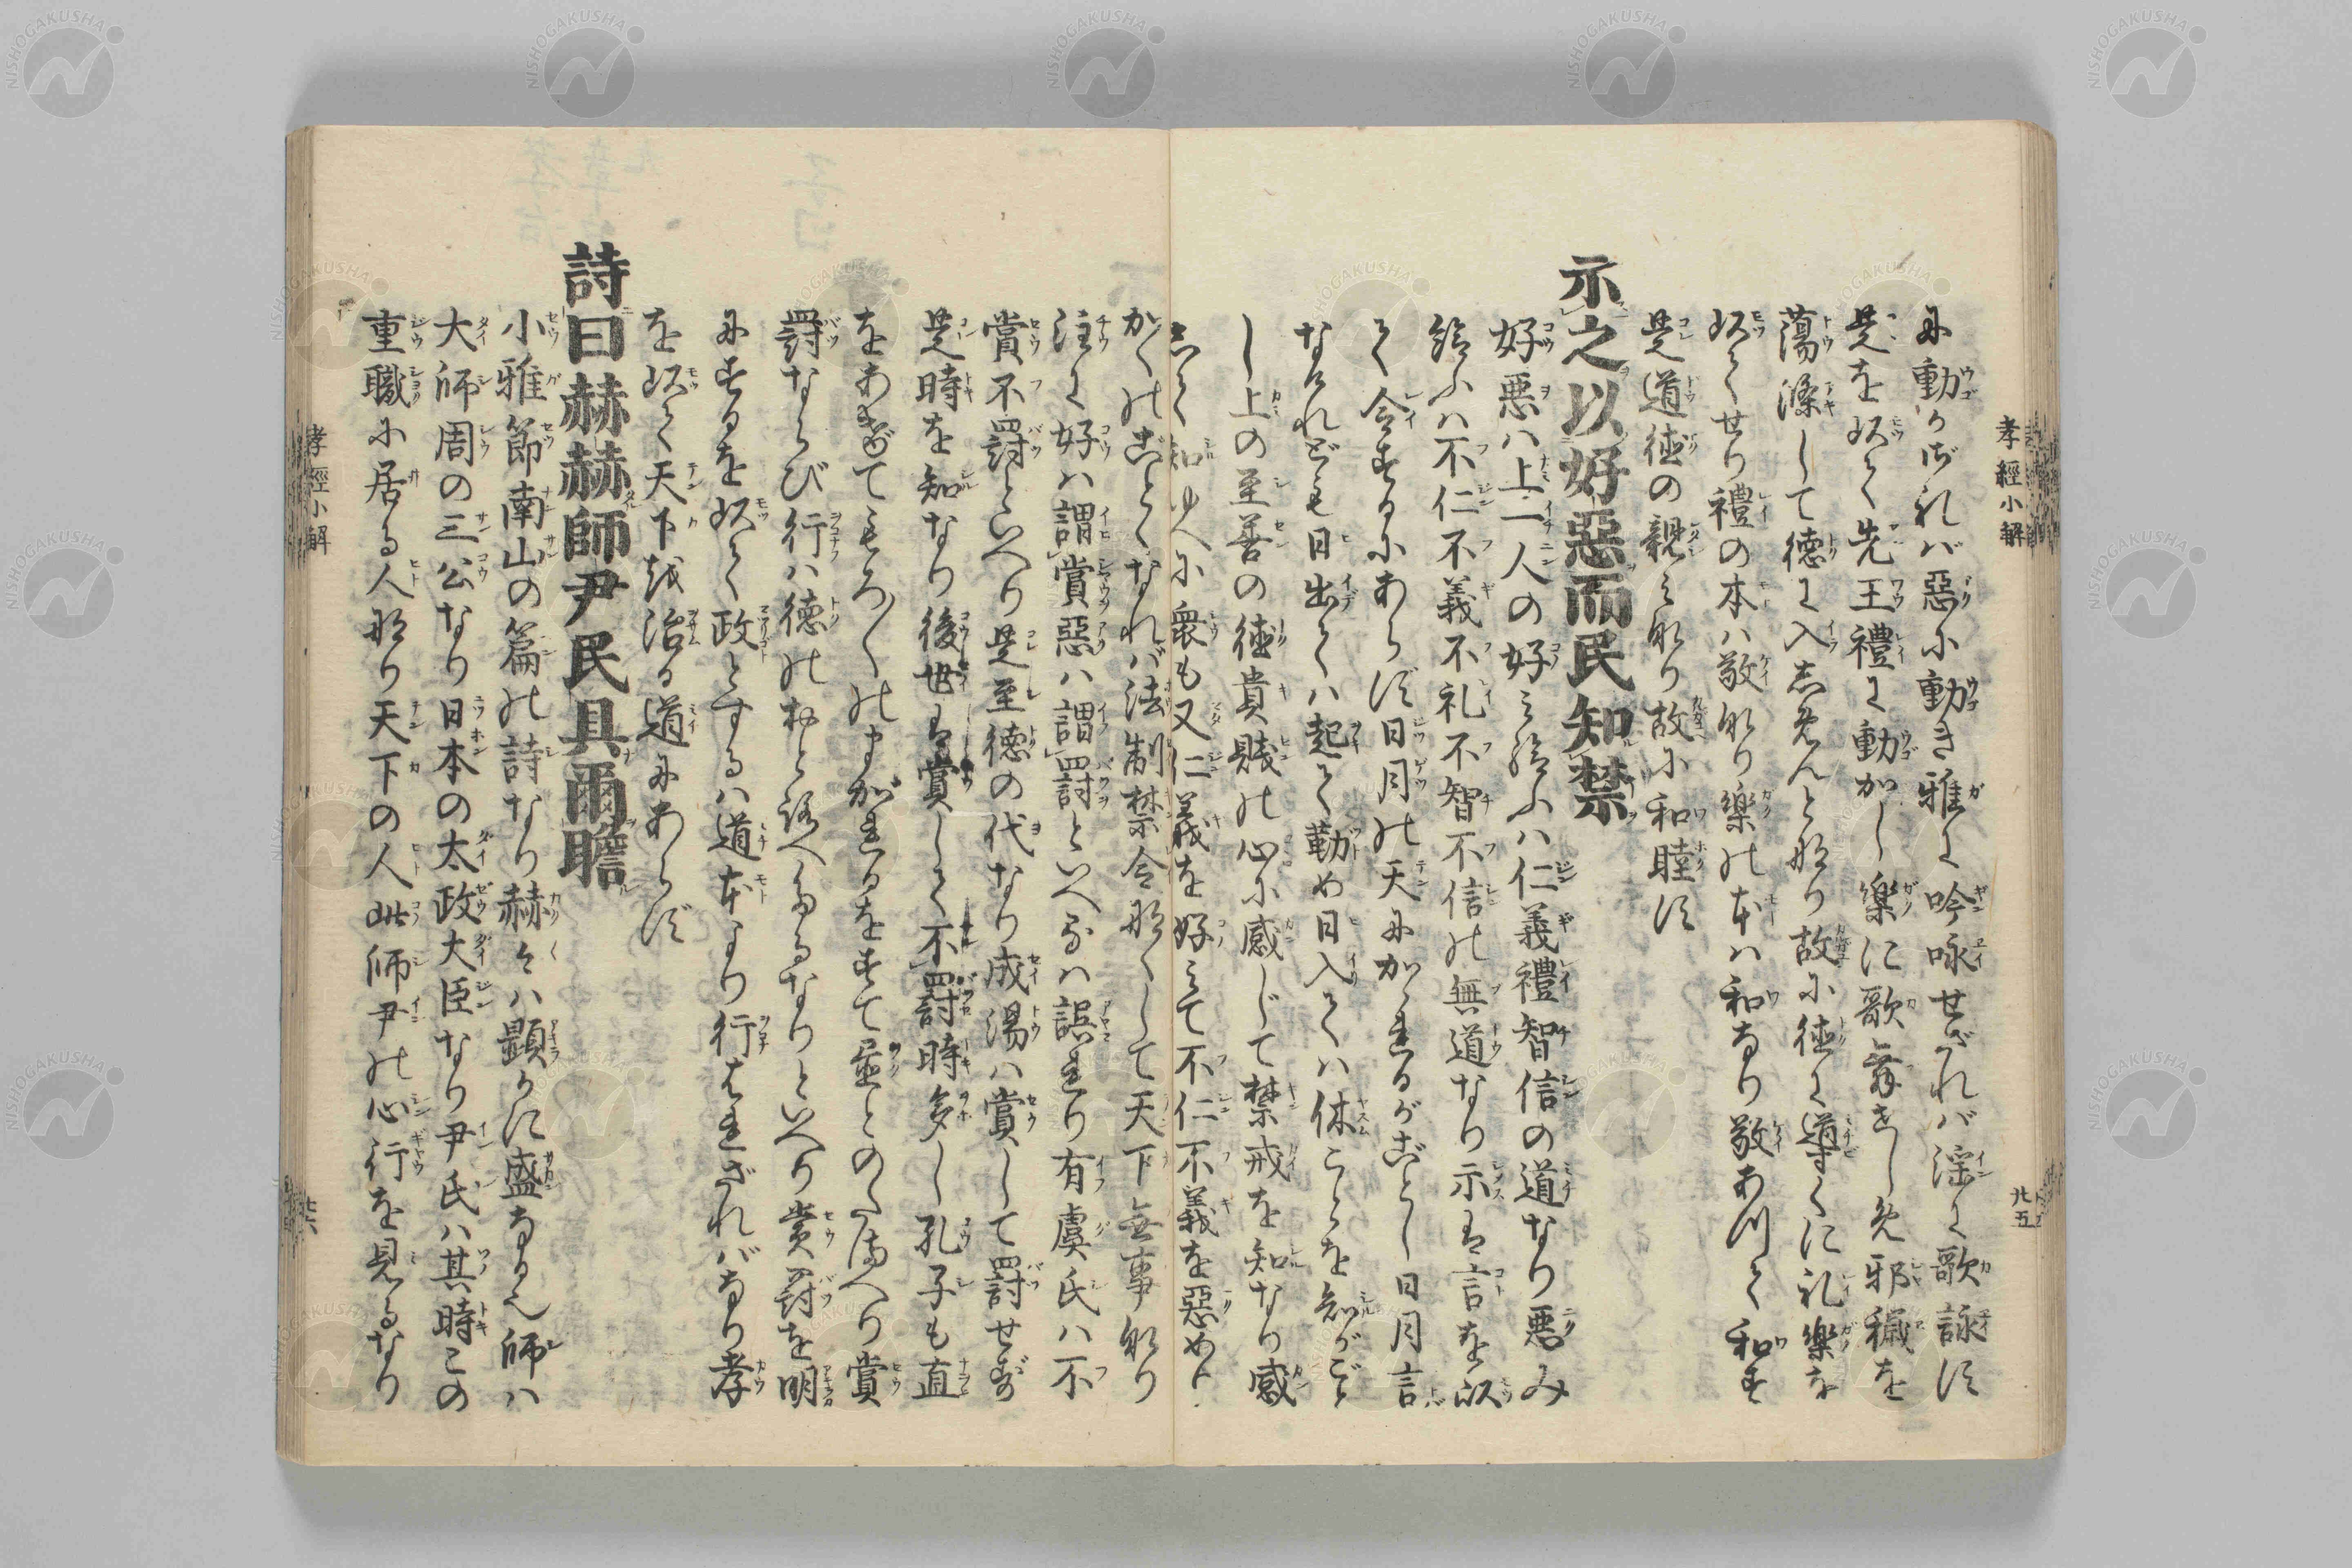 孝經小解
廿五
に動かざれバ惡に動き雅に吟咏せざれバ淫に歌詠す
是を以て先王禮に動かし樂に歌舞せしめ邪穢を
蕩滌して徳に入しめんと也故に徳に導くに礼樂を
以てせり禮の本ハ敬なり樂の本ハ和なり敬あつて和す
是道徳の親みなり故に和睦す
示之以好惡而民知禁
好惡ハ上一人の好み給ふハ仁義禮智信の道なり惡み
給ふハ不仁不義不礼不智不信の無道なり示は言を以
て令するにあらず日月の天にかゝるがごとし日月言
なけれども日出てハ起て勤め日入てハ休ことを知がごと
し上の至善の徳貴賎の心に感じて禁戒を知なり感
して知ゆへに衆も又仁義を好みて不仁不義を惡めり
かくのごとくなれバ法制禁令なくして天下無事なり
注に好ハ謂賞惡ハ謂罸といへるハ誤れり有虞氏ハ不
賞不罸といへり是至徳の代なり成湯ハ賞して罸せず
是時を知なり後世は賞して不罸時多し孔子も直
をあげてもろ〳〵のまがれるをすて並とのたまへり賞
罸ならび行ハ徳の おと ろへたるなりといへり賞罸を明
にするを以て政とするハ道本より行はれざればなり孝
を以て天下を治る道にあらず
詩曰赫赫師尹民具爾瞻
小雅節南山の篇の詩なり赫々ハ顕かに盛なる也師ハ
大師周の三公なり日本の太政大臣なり尹氏ハ其時この
重職に居る人なり天下の人此師尹の心行を見るなり
孝經小解
廿六